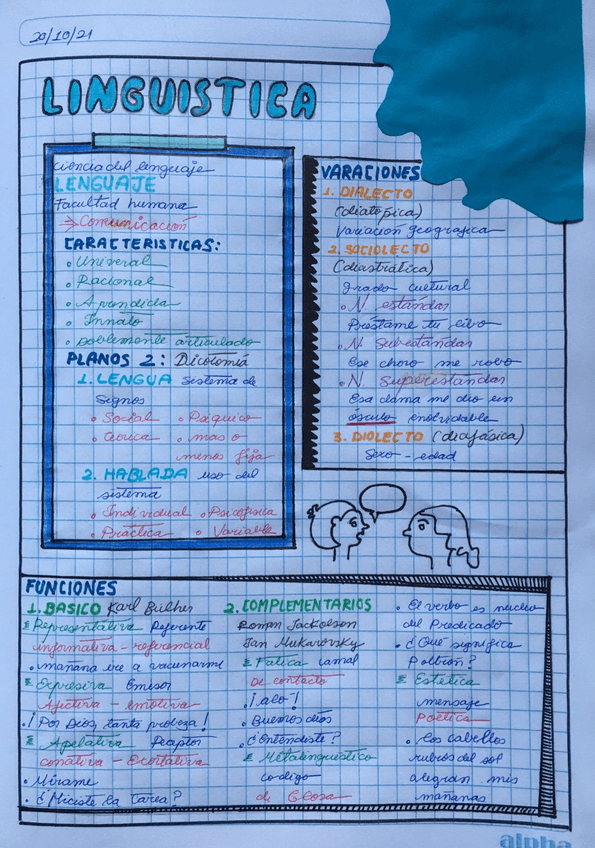 20/10/21
LINGUISTICA
ciencia del lenguaje
LENGUAJE
Facultad humana
→ Comunicación
CARACTERISTICAS:
• Universal
• Racional
• Aprendida
• Innato
• Doblemente articulado
PLANOS 2: Dicotomía
1. LENGUA sistema de
signos
• Social • Psíquico
• teórica • mas o
menos fija
2. HABLADA uso del
sistema
• Individual • Psicofísica
• Práctica • Variable
VARACIONES
1. DIALECTO
(diatópica)
Variación geográfica
2. SOCIOLECTO
(diastrática)
grado cultural
• N. estándar
Préstame tu libro
• N. Subestándar
Ese choro me robo
• N. Superestándar
Esa dama me dio un
ósculo inolvidable
3. DIOLECTO (diafásica)
Sexo - edad
FUNCIONES
1. BASICO Karl Bulher
Representativa Referente
informativa - referencial
• mañana iré a vacunarme
Expresiva Emisor
Afectiva - emotiva
• ¡Por Dios, tanta pobreza!
Apelativa Receptor
conativa - Exortativa
• Mírame
• ¿Hiciste la tarea?
2. COMPLEMENTARIOS
Roman Jackolson
Jan Mukarovsky
Fática canal
De contacto
• ¡aló!
• Buenos días
• ¿Entendiste?
Metalingüístico
codigo
de Glosa
• El verbo es núcleo
del Predicado
• ¿Qué significa
Poltrón?
Estética
mensaje
Poética
• los cabellos
rubios del sol
alegran mis
mañanas
alpha